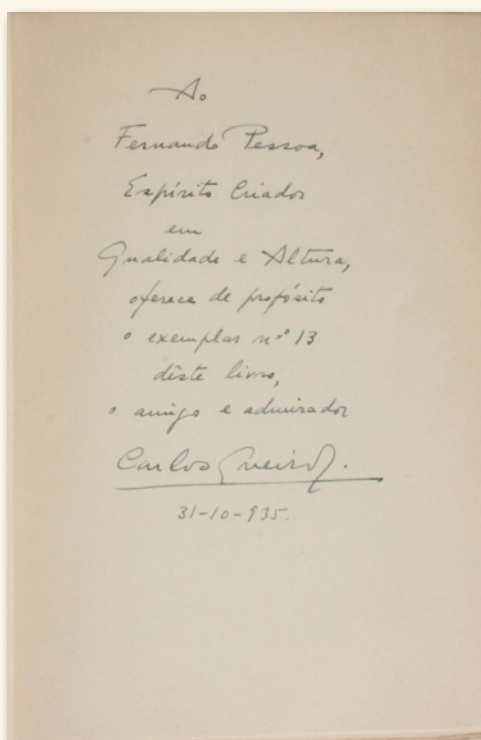 Ao
Fernando Pessoa,
Espírito Criador
em
Qualidade e Altura,
oferece de propósito
o exemplar nº 13
dêste livro,
o amigo e admirador
Carlos Queiroz.
31-10-935.